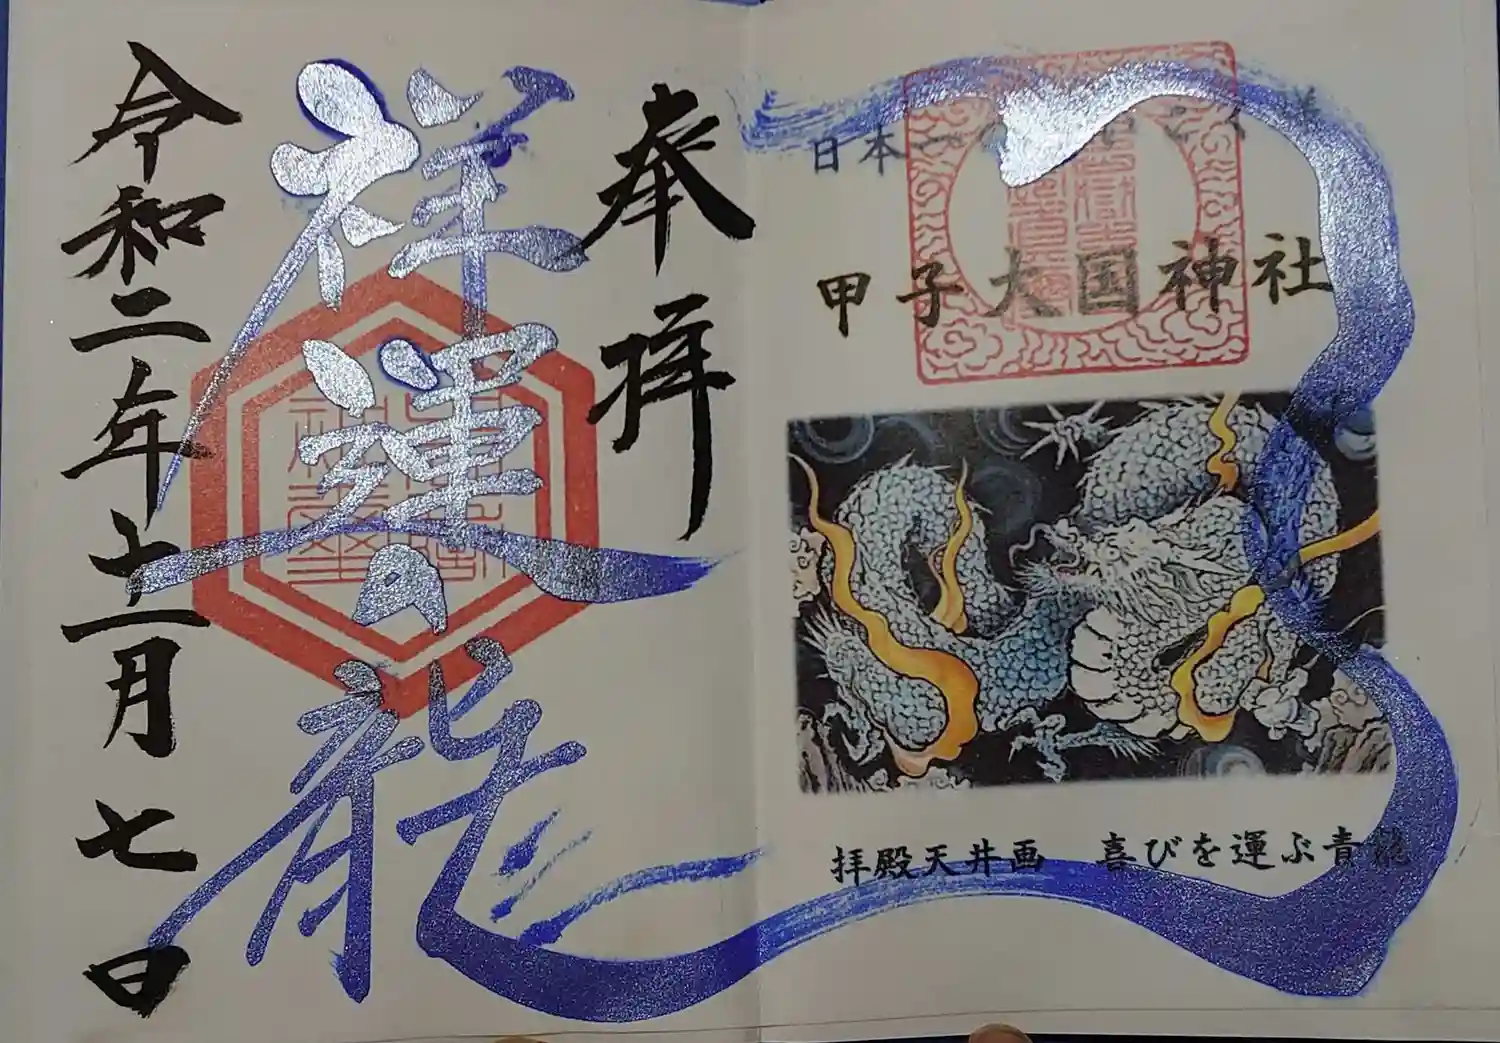 日本
甲子大国神社
拝殿天井画 喜びを運ぶ青龍
奉拝
祥運龍
令和二年十二月七日